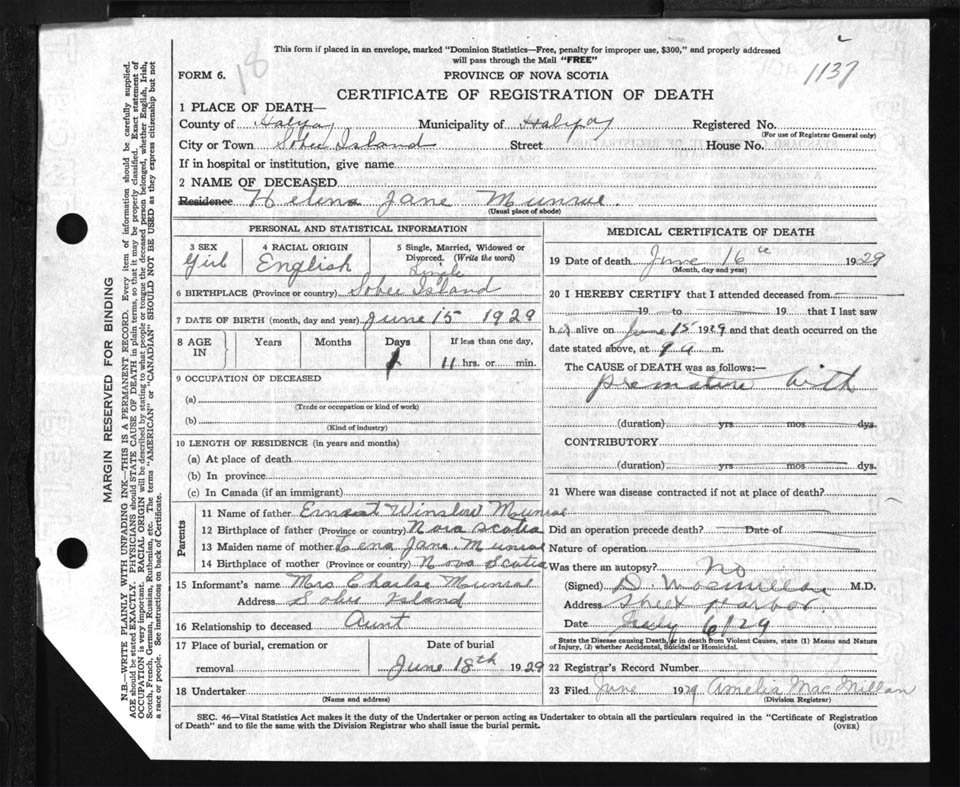 This form if placed in an envelope, marked "Dominion Statistics—Free, penalty for improper use, $300," and properly addressed
will pass through the Mail "FREE"
18
1137
FORM 6.
PROVINCE OF NOVA SCOTIA
CERTIFICATE OF REGISTRATION OF DEATH
1 PLACE OF DEATH—
County of Halifax Municipality of Halifax Registered No.
(For use of Registrar General only)
City or Town Sober Island Street House No.
If in hospital or institution, give name
2 NAME OF DECEASED
Residence Helena Jane Munroe.
(Usual place of abode)
PERSONAL AND STATISTICAL INFORMATION
3 SEX 4 RACIAL ORIGIN 5 Single, Married, Widowed or
Divorced. (Write the word)
Girl English Single
6 BIRTHPLACE (Province or country) Sober Island
7 DATE OF BIRTH (month, day and year) June 15 1929
8 AGE IN Years Months Days If less than one day,
1 11 hrs. or min.
9 OCCUPATION OF DECEASED
(a)
(Trade or occupation or kind of work)
(b)
(Kind of industry)
10 LENGTH OF RESIDENCE (in years and months)
(a) At place of death
(b) In province
(c) In Canada (if an immigrant)
Parents
11 Name of father Ernest Winslow Munroe
12 Birthplace of father (Province or country) Nova Scotia
13 Maiden name of mother Lena Jane Munroe
14 Birthplace of mother (Province or country) Nova Scotia
15 Informant's name Mrs Charlse Munroe
Address Sober Island
16 Relationship to deceased Aunt
17 Place of burial, cremation or removal Date of burial
June 18th 1929
18 Undertaker
(Name and address)
MEDICAL CERTIFICATE OF DEATH
19 Date of death June 16th 1929
(Month, day and year)
20 I HEREBY CERTIFY that I attended deceased from
19 to 19 that I last saw
her alive on June 15 1929 and that death occurred on
date stated above, at 9 a m.
The CAUSE of DEATH was as follows:—
premature birth
(duration) yrs mos dys.
CONTRIBUTORY
(duration) yrs mos dys.
21 Where was disease contracted if not at place of death?
Did an operation precede death? Date of
Nature of operation
Was there an autopsy? No
(Signed) D. MacMillan M.D.
Address Sheet Harbor
Date July 6/29
State the Disease causing Death, or in death from Violent Causes, state (1) Means and Nature
of Injury, (2) whether Accidental, Suicidal or Homicidal.
22 Registrar's Record Number
23 Filed June 1929 Amelia MacMillan
(Division Registrar)
SEC. 46—Vital Statistics Act makes it the duty of the Undertaker or person acting as Undertaker to obtain all the particulars required in the "Certificate of Registration
of Death" and to file the same with the Division Registrar who shall issue the burial permit.
(OVER)
MARGIN RESERVED FOR BINDING
N.B.—WRITE PLAINLY WITH UNFADING INK—THIS IS A PERMANENT RECORD. Every item of information should be carefully supplied.
AGE should be stated EXACTLY. PHYSICIANS should STATE CAUSE OF DEATH in plain terms, so that it may be properly classified. Exact statement of
OCCUPATION is very important. RACIAL ORIGIN will be described by stating to what people or tongue the deceased person belonged, whether English, Irish,
Scotch, French, German, Russian, Ruthenian, etc. The terms "AMERICAN" or "CANADIAN" SHOULD NOT BE USED as they express citizenship but not
a race or people. See instructions on back of Certificate.